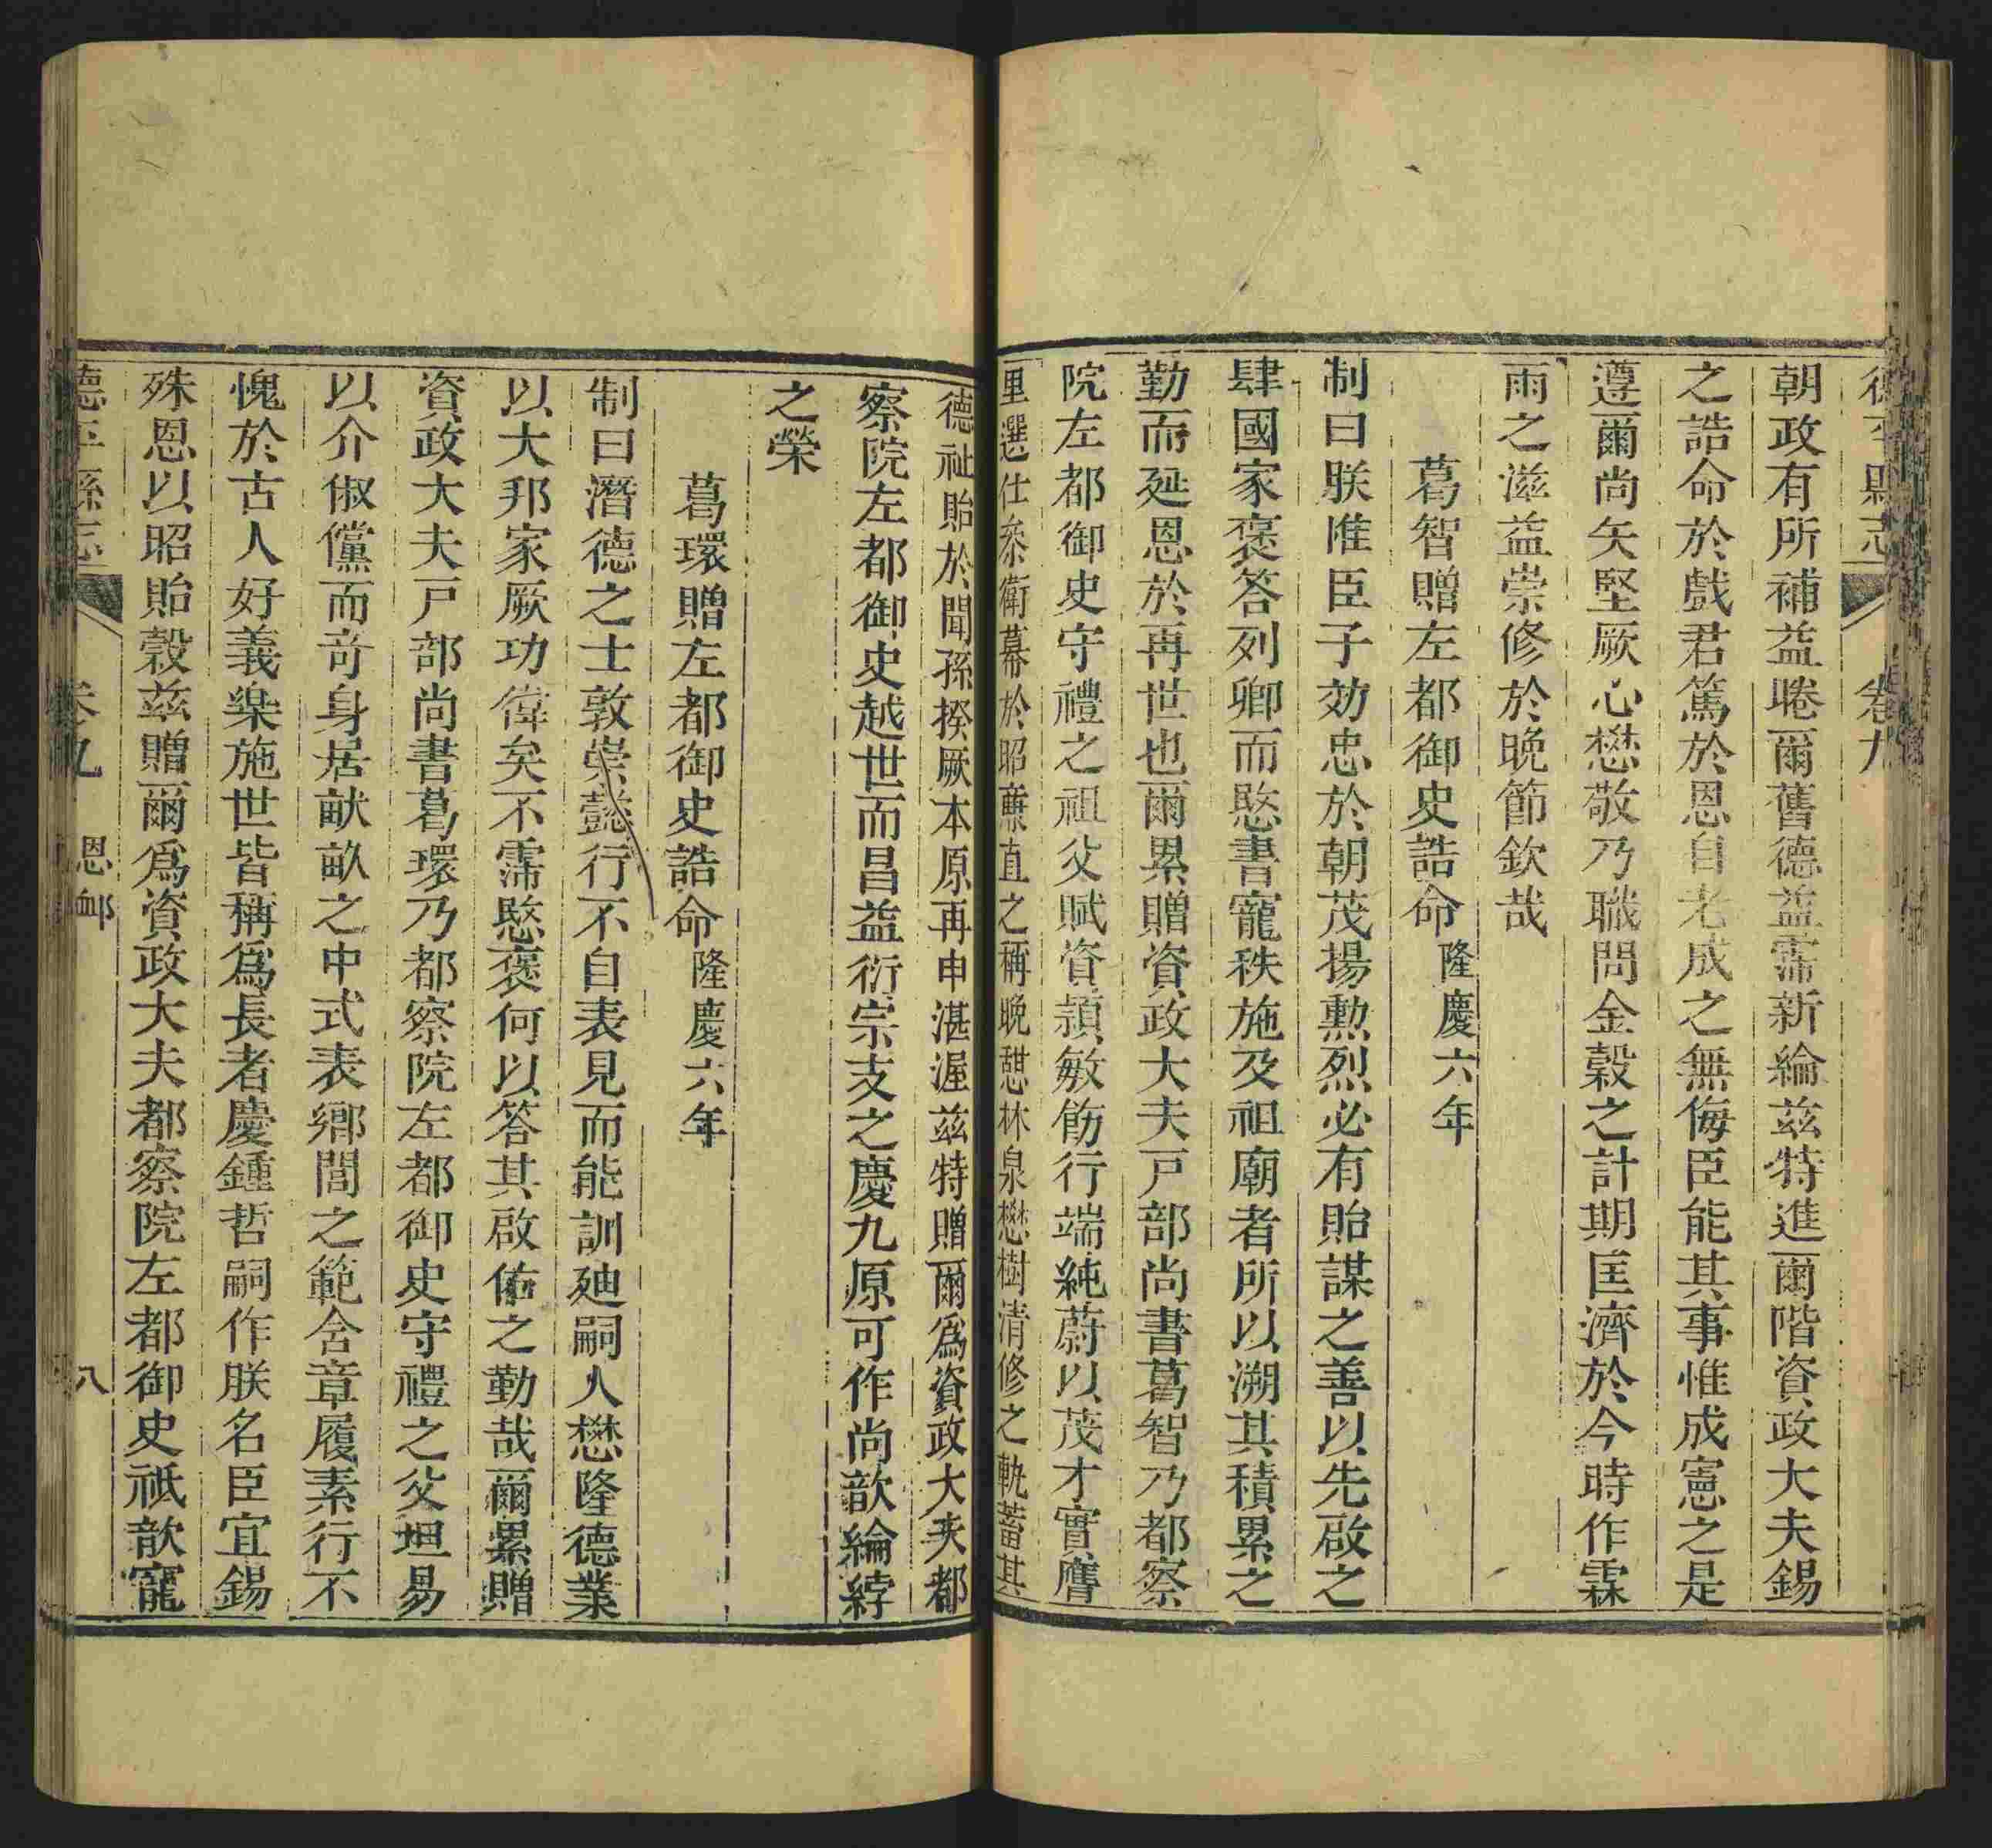 德平縣志　卷九
朝政有所補益睠爾舊德益霈新綸茲特進爾階資政大夫錫
之誥命於戲君篤於恩自老成之無侮臣能其事惟成憲之是
遵爾尚矢堅厥心懋敬乃職問金穀之計期匡濟於今時作霖
雨之滋益崇修於晚節欽哉
葛智贈左都御史誥命隆慶六年
制曰朕惟臣子効忠於朝茂揚勲烈必有貽謀之善以先啟之
肆國家褒答列卿而愍書寵秩施及祖廟者所以溯其積累之
勤而延恩於再世也爾累贈資政大夫戸部尚書葛智乃都察
院左都御史守禮之祖父賦資頴敏飭行端純蔚以茂才實膺
里選仕叅衛幕於昭亷直之稱晚憇林泉懋樹清修之軌蓄其
德祉貽於聞孫揆厥本原再申湛渥茲特贈爾爲資政大夫都
察院左都御史越世而昌益衍宗支之慶九原可作尚歆綸綍
之榮
葛環贈左都御史誥命隆慶六年
制曰潛德之士敦崇懿行不自表見而能訓廸嗣人懋隆德業
以大邦家厥功偉矣不霈愍褒何以答其啟佑之勤哉爾累贈
資政大夫戸部尚書葛環乃都察院左都御史守禮之父坦易
以介俶儻而竒身居畎畝之中式表鄉閭之範含章履素行不
愧於古人好義樂施世皆稱爲長者慶鍾哲嗣作朕名臣宜錫
殊恩以昭貽穀茲贈爾爲資政大夫都察院左都御史祇歆寵
德平縣志　卷九　恩衈　八